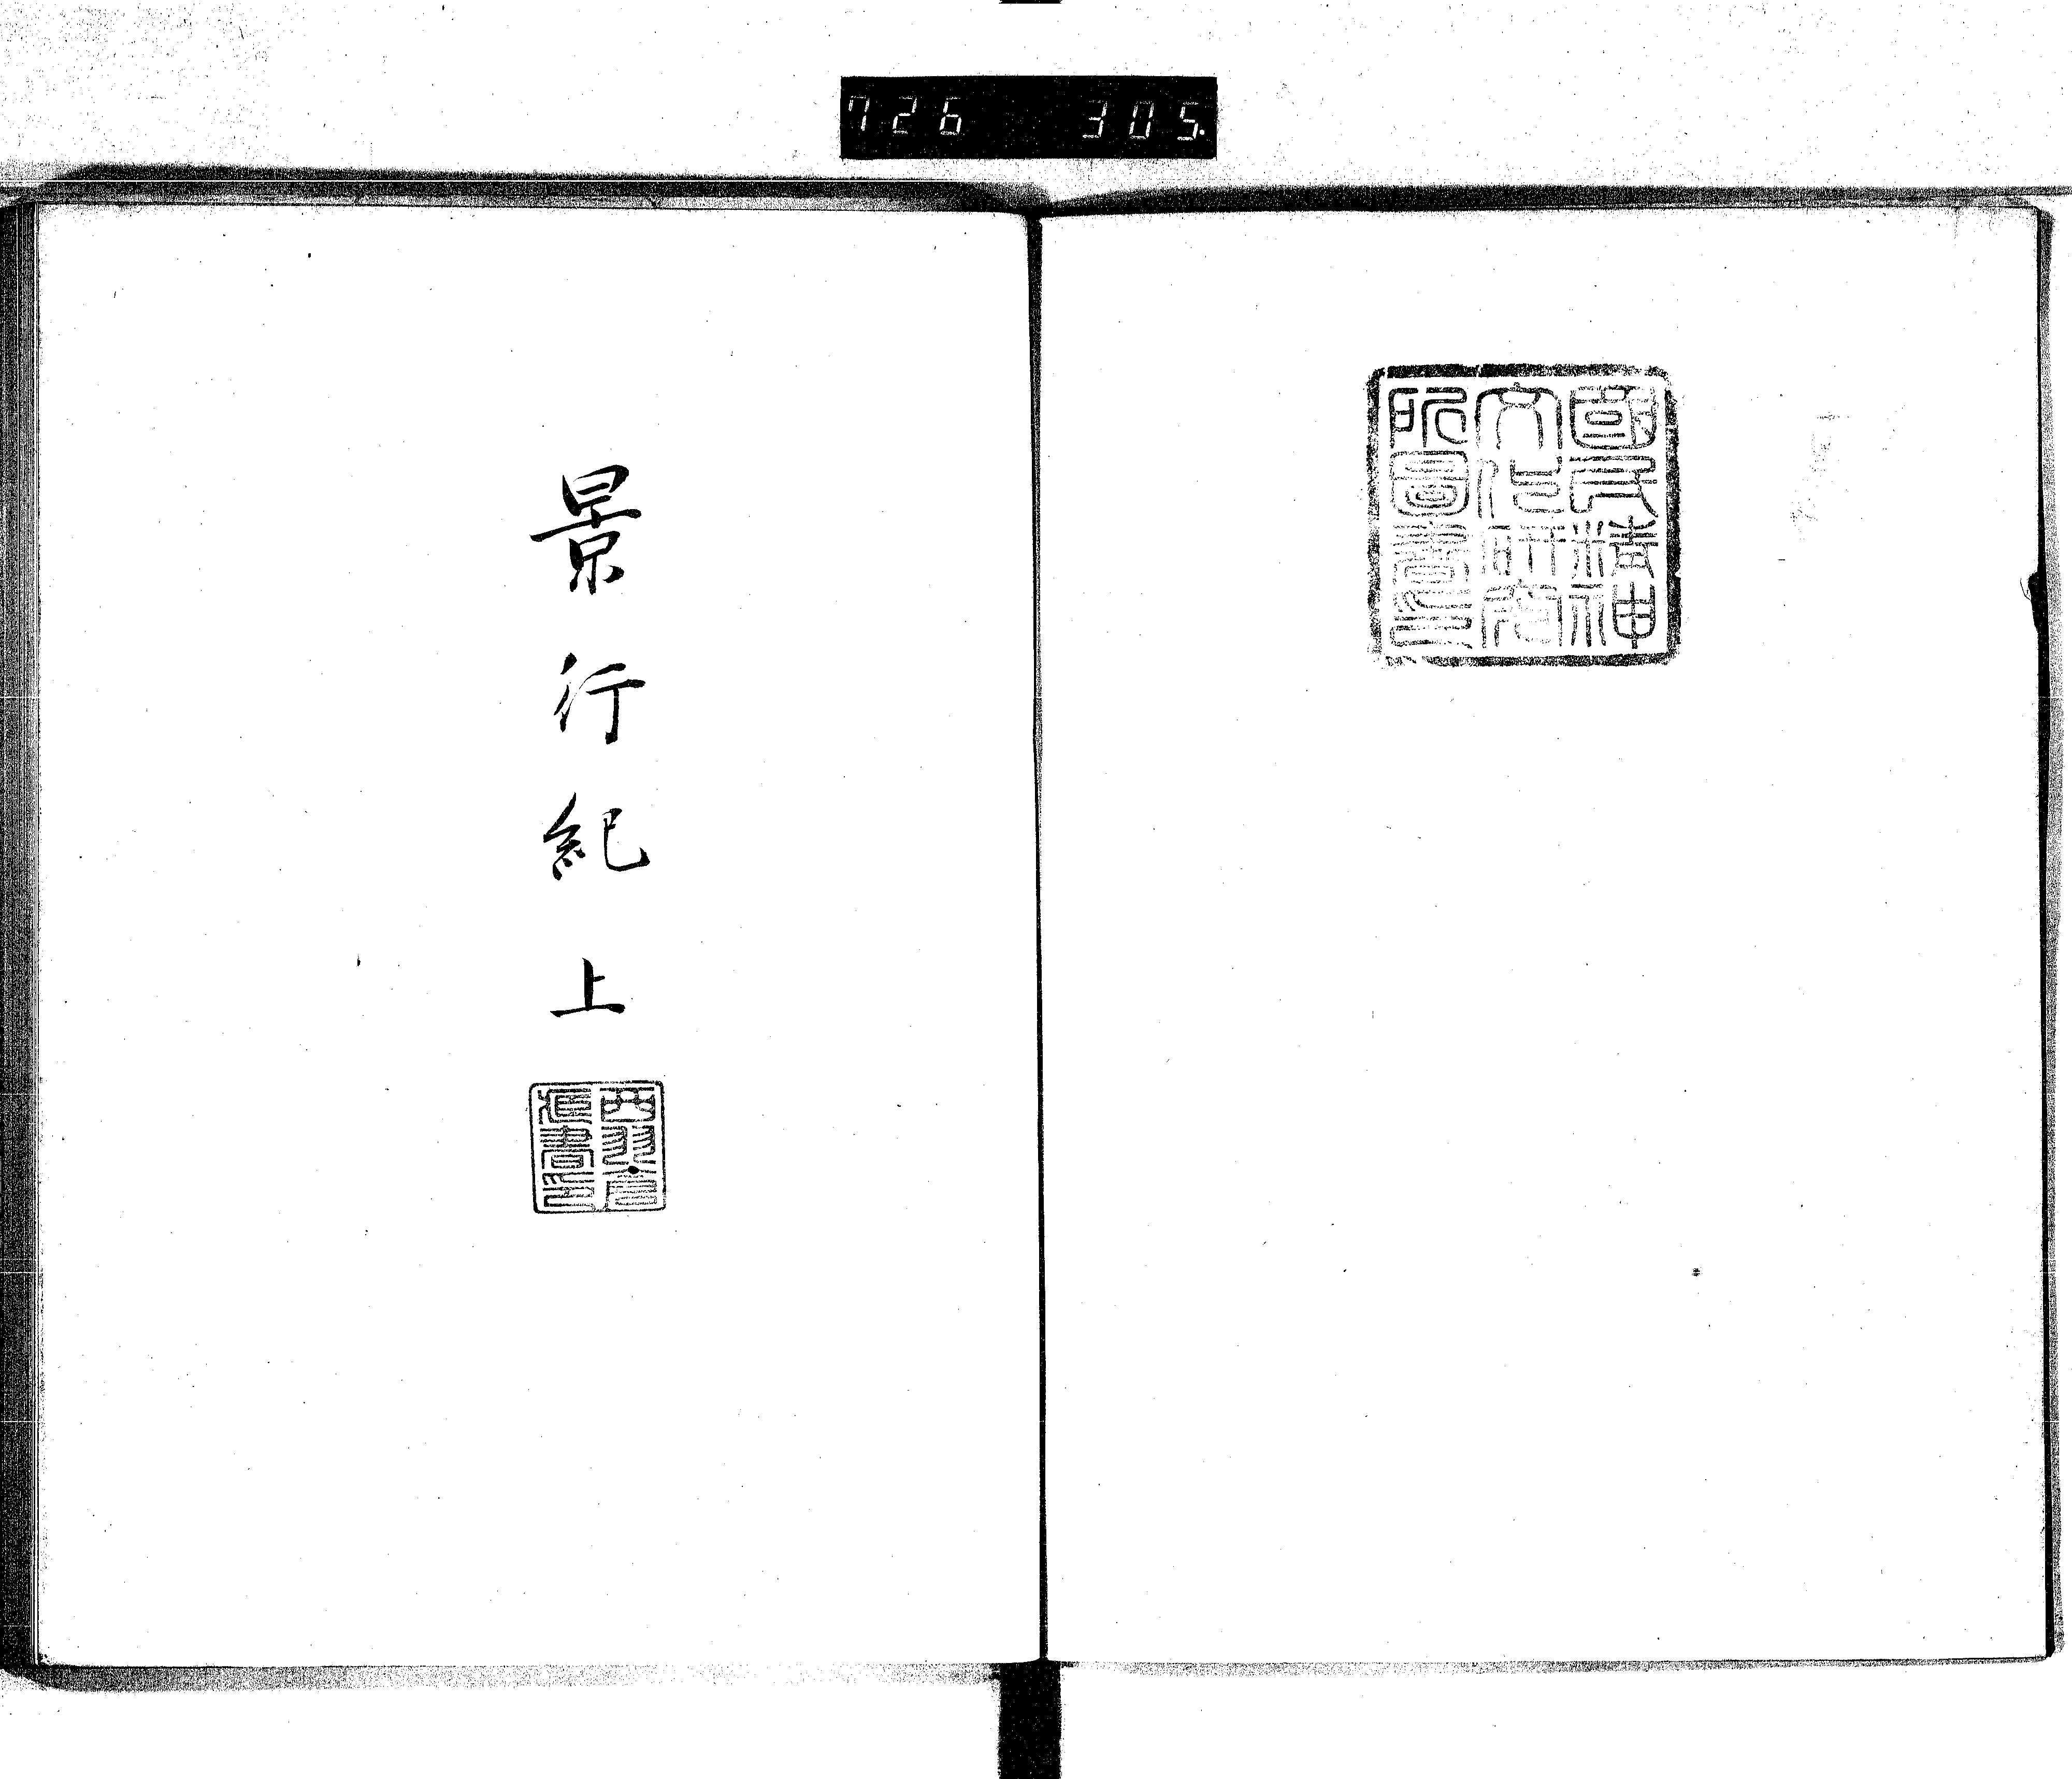 726 305.
國民精神
文化研究
所圖書印
景行紀上